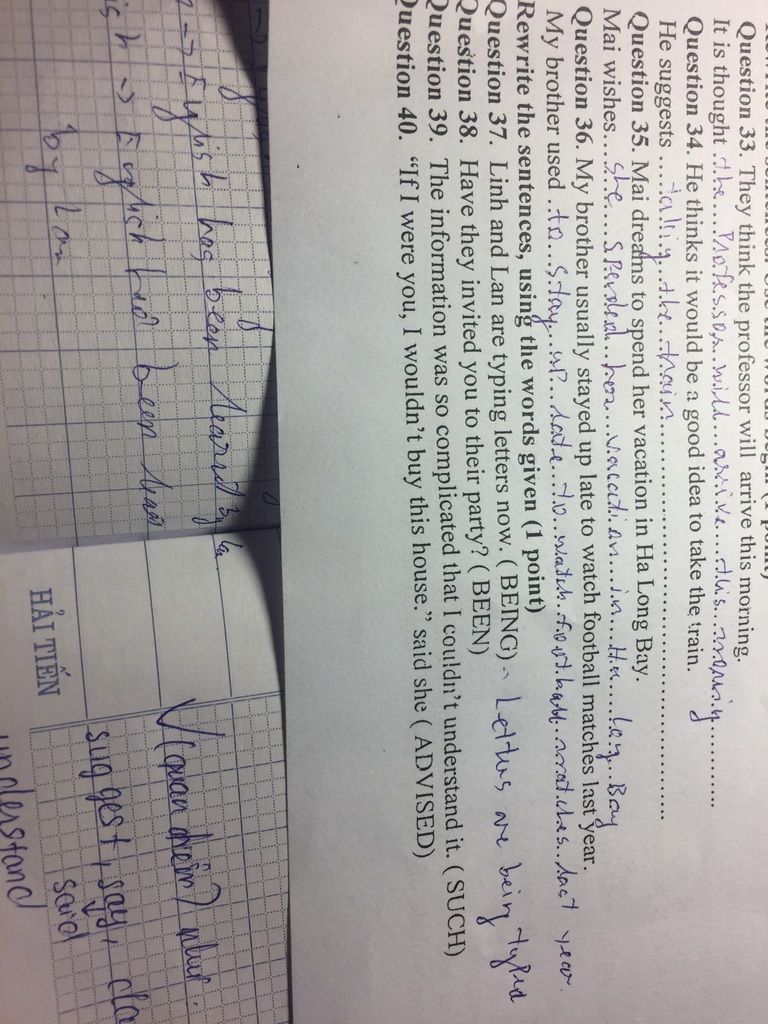 Question 33. They think the professor will arrive this morning.
It is thought the professor will arrive this morning
Question 34. He thinks it would be a good idea to take the train.
He suggests talling the train
Question 35. Mai dreams to spend her vacation in Ha Long Bay.
Mai wishes she spended her vacation in Ha log Bay
Question 36. My brother usually stayed up late to watch football matches last year.
My brother used to stay up late to watch football matches last year.
Rewrite the sentences, using the words given (1 point)
Question 37. Linh and Lan are typing letters now. ( BEING) Letters are being typed
Question 38. Have they invited you to their party? ( BEEN)
Question 39. The information was so complicated that I couldn't understand it. ( SUCH)
Question 40. "If I were you, I wouldn't buy this house." said she ( ADVISED)
→ English has been learnd by
→ English had been
by Lan
HẢI TIẾN
V (quan điểm) như
suggest, say,
said
understand